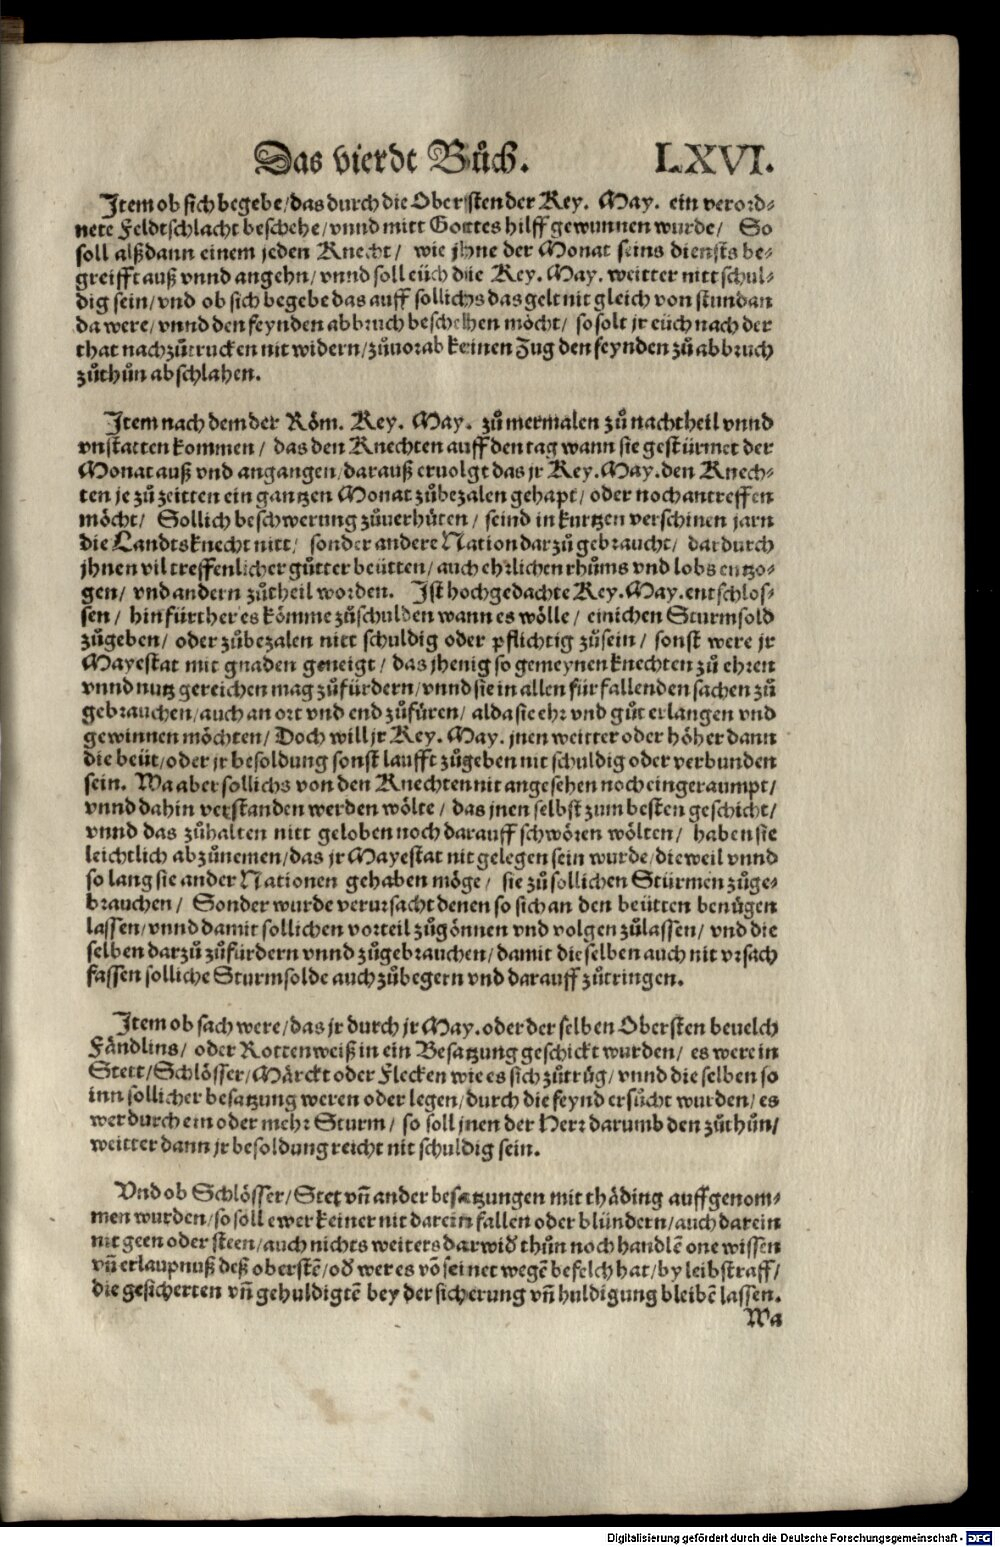 Das vierdt Bůch. LXVI.
Item ob sich begebe/das durch die Obersten der Key. May. ein verord-
nete Feldtschlacht beschehe/vnnd mitt Gottes hilff gewunnen wurde/ So
soll alßdann einem jeden Knecht/ wie jhne der Monat seins diensts be-
greifft auß vnnd angehn/vnnd soll eüch die Key. May. weitter nitt schul-
dig sein/vnd ob sich begebe das auff sollichs das gelt nit gleich von stundan
da were/vnnd den feynden abbruch beschehen möcht/ so solt jr eüch nach der
that nachzůtrucken nit widern/zůuorab keinen Zug den feynden zů abbruch
zůthůn abschlahen.
Item nach dem der Röm. Key. May. zů mermalen zů nachtheil vnnd
vnstatten kommen/ das den Knechten auff den tag wann sie gestürmet der
Monat auß vnd angangen/darauß eruolgt das jr Key. May. den Knech-
ten je zů zeitten ein gantzen Monat zůbezalen gehapt/ oder noch antreffen
möcht/ Sollich beschwerung zůuerhüten/ seind in kurtzen verschinen jarn
die Landtsknecht nitt/ sonder andere Nation darzů gebraucht/ dardurch
jhnen vil treffenlicher gůtter beütten/auch ehrlichen rhůms vnd lobs entzo-
gen/ vnd andern zůtheil worden. Ist hochgedachte Key. May. entschlos-
sen/ hinfürther es kömme zůschulden wann es wölle/ einichen Sturmsold
zůgeben/ oder zůbezalen nitt schuldig oder pflichtig zůsein/ sonst were jr
Mayestat mit gnaden geneigt/ das jhenig so gemeynen knechten zů ehren
vnnd nutz gereichen mag zůfürdern/vnnd sie in allen fürfallenden sachen zů
gebrauchen/auch an ort vnd end zůfüren/ alda sie ehr vnd gůt erlangen vnd
gewinnen möchten/ Doch will jr Key. May. jnen weitter oder höher dann
die beüt/oder jr besoldung sonst laufft zůgeben nit schuldig oder verbunden
sein. Wa aber sollichs von den Knechten nit angesehen noch eingeraumpt/
vnnd dahin verstanden werden wölte/ das jnen selbst zum besten geschicht/
vnnd das zůhalten nitt geloben noch darauff schwören wölten/ haben sie
leichtlich abzůnemen/das jr Mayestat nit gelegen sein wurde/dieweil vnnd
so lang sie ander Nationen gehaben möge/ sie zů sollichen Stürmen zůge-
brauchen/ Sonder wurde verursacht denen so sich an den beütten benügen
lassen/vnnd damit sollichen vorteil zůgönnen vnd volgen zůlassen/ vnd die
selben darzů zůfürdern vnnd zůgebrauchen/damit die selben auch nit vrsach
fassen solliche Sturmsolde auch zůbegern vnd darauff zůtringen.
Item ob sach were/das jr durch jr May. oder der selben Obersten beuelch
Fändlins/ oder Rottenweiß in ein Besatzung geschickt wurden/ es were in
Stett/Schlösser/Märckt oder Flecken wie es sich zůtrůg/vnnd die selben so
inn sollicher besatzung weren oder legen/durch die feynd ersůcht wurden/es
wer durch ein oder mehr Sturm/ so soll jnen der Herr darumb den zůthůn/
weitter dann jr besoldung reicht nit schuldig sein.
Vnd ob Schlösser/Stet vn̄ ander besatzungen mit thäding auffgenom-
men wurden/so soll ewer keiner nit darein fallen oder blündern/auch darein
nit geen oder steen/auch nichts weiters darwiď thůn noch handlē one wissen
vn̄ erlaupnuß deß oberstē/oď wer es vō seinet wegē befelch hat/by leibstraff/
die gesicherten vn̄ gehuldigtē bey der sicherung vn̄ huldigung bleibē lassen.
Wa
Digitalisierung gefördert durch die Deutsche Forschungsgemeinschaft - DFG